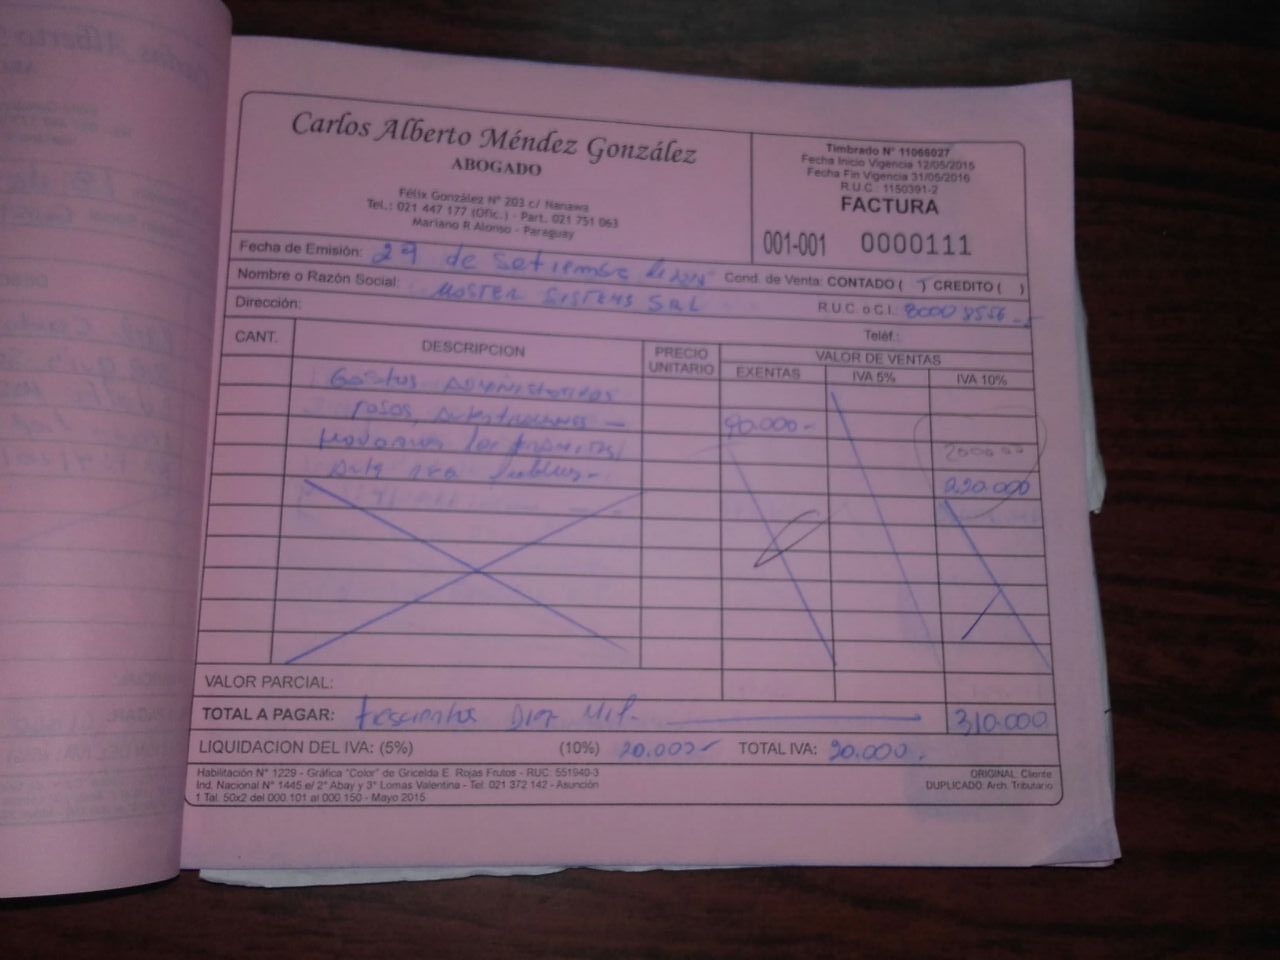 Carlos Alberto Méndez González
ABOGADO
Félix González N° 203 c/ Nanawa
Tel.: 021 447 177 (Ofic.) - Part. 021 751 063
Mariano R Alonso - Paraguay
Timbrado N° 11066027
Fecha Inicio Vigencia 12/05/2015
Fecha Fin Vigencia 31/05/2016
R.U.C.: 1150391-2
FACTURA
001-001 0000111
Fecha de Emisión: 29 de Setiembre de
Cond. de Venta: CONTADO ( ) CREDITO ( )
Nombre o Razón Social: MOSTER SISTEMS SRL
R.U.C. o C.I.: 80008556
Dirección:
Teléf.:
CANT. DESCRIPCION PRECIO UNITARIO VALOR DE VENTAS
EXENTAS IVA 5% IVA 10%
Gastos Administrativos
90.000-
220.000
VALOR PARCIAL:
TOTAL A PAGAR: trescientos Diez Mil. 310.000
LIQUIDACION DEL IVA: (5%) (10%) 20.000 TOTAL IVA: 20.000
Habilitación N° 1229 - Gráfica "Color" de Gricelda E. Rojas Frutos - RUC: 551940-3
Ind. Nacional N° 1445 e/ 2° Abay y 3° Lomas Valentina - Tel. 021 372 142 - Asunción
1 Tal. 50x2 del 000 101 al 000 150 - Mayo 2015
ORIGINAL: Cliente
DUPLICADO: Arch. Tributario